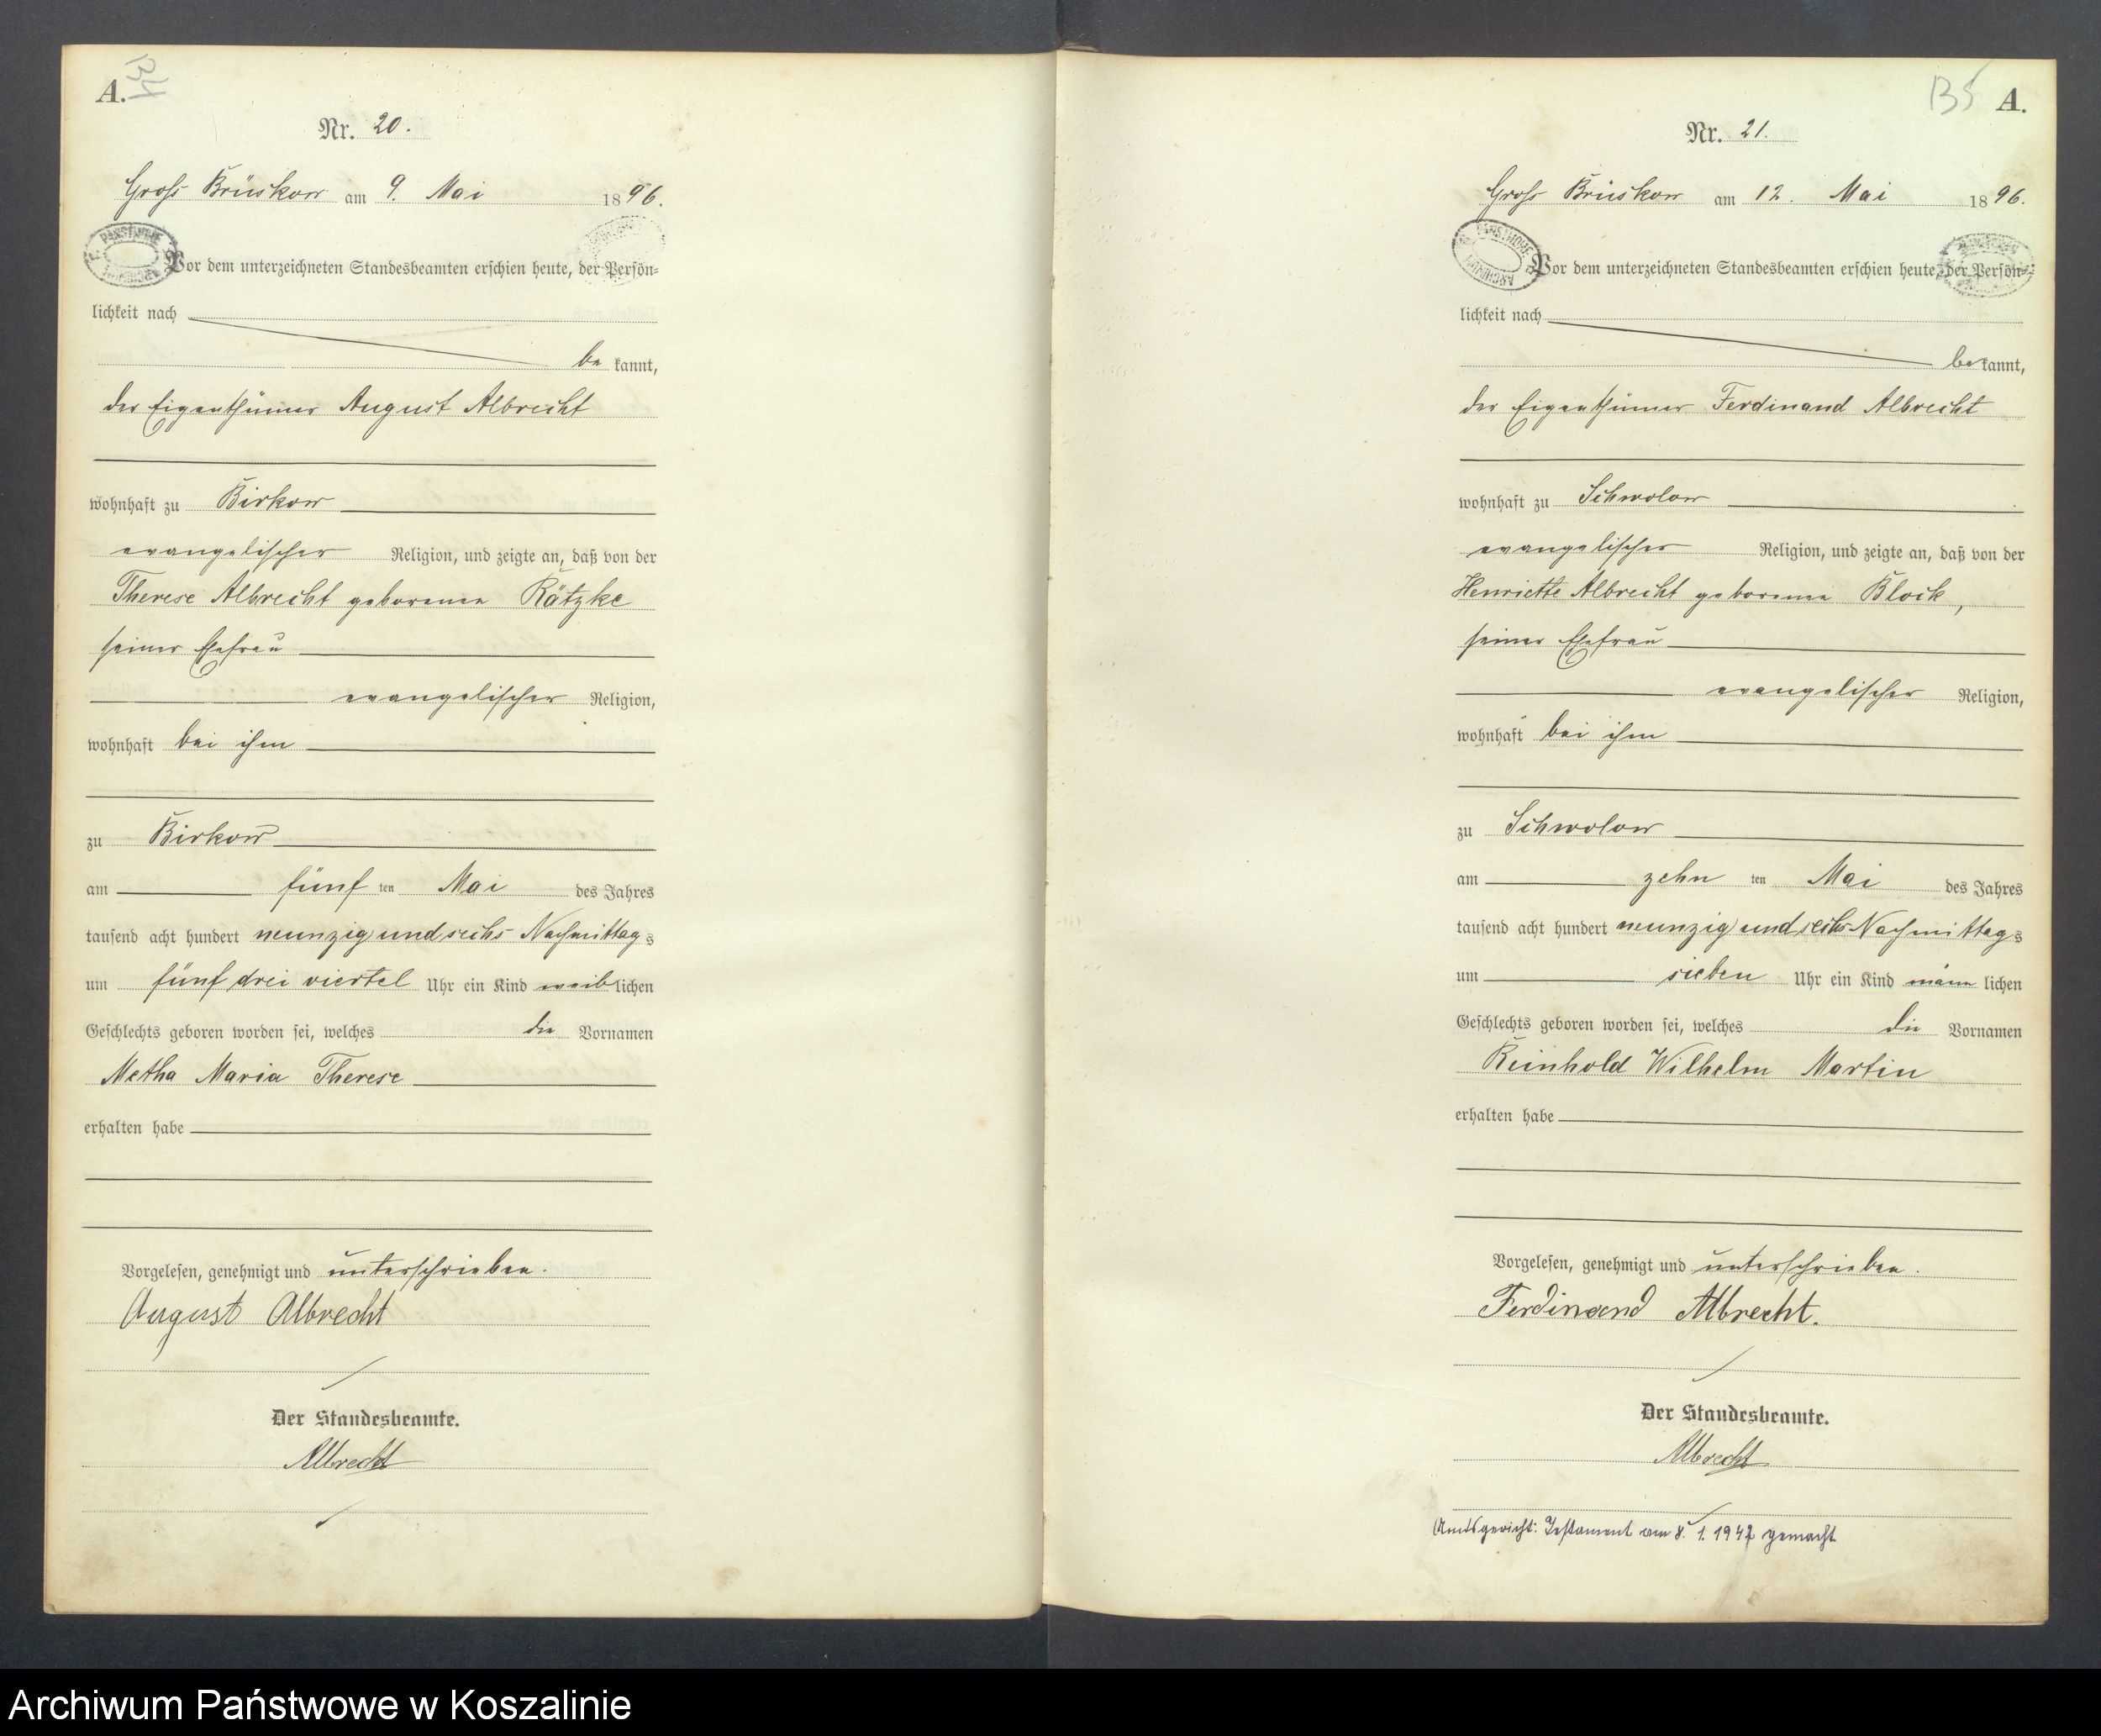 A.
134
Nr. 20.
Groß Brüskow am 9. Mai 1896.
Vor dem unterzeichneten Standesbeamten erschien heute, der Persön-
lichkeit nach
be kannt,
der Eigenthümer August Albrecht
wohnhaft zu Birkow
evangelischer Religion, und zeigte an, daß von der
Therese Albrecht geborenen Rätzke
seiner Ehefrau
evangelischer Religion,
wohnhaft bei ihm
zu Birkow
am fünf ten Mai des Jahres
tausend acht hundert neunzig und sechs Nachmittags
um fünf drei viertel Uhr ein Kind weiblichen
Geschlechts geboren worden sei, welches die Vornamen
Metha Maria Therese
erhalten habe
Vorgelesen, genehmigt und unterschrieben.
August Albrecht
Der Standesbeamte.
Albrecht
135 A.
Nr. 21.
Groß Brüskow am 12. Mai 1896.
Vor dem unterzeichneten Standesbeamten erschien heute, der Persön-
lichkeit nach
be kannt,
der Eigenthümer Ferdinand Albrecht
wohnhaft zu Schwolow
evangelischer Religion, und zeigte an, daß von der
Henriette Albrecht geborenen Block,
seiner Ehefrau
evangelischer Religion,
wohnhaft bei ihm
zu Schwolow
am zehn ten Mai des Jahres
tausend acht hundert neunzig und sechs Nachmittags
um sieben Uhr ein Kind männ lichen
Geschlechts geboren worden sei, welches die Vornamen
Reinhold Wilhelm Martin
erhalten habe
Vorgelesen, genehmigt und unterschrieben.
Ferdinand Albrecht.
Der Standesbeamte.
Albrecht
Amtsgericht: Testament am 8. 1. 1942 gemacht
Archiwum Państwowe w Koszalinie